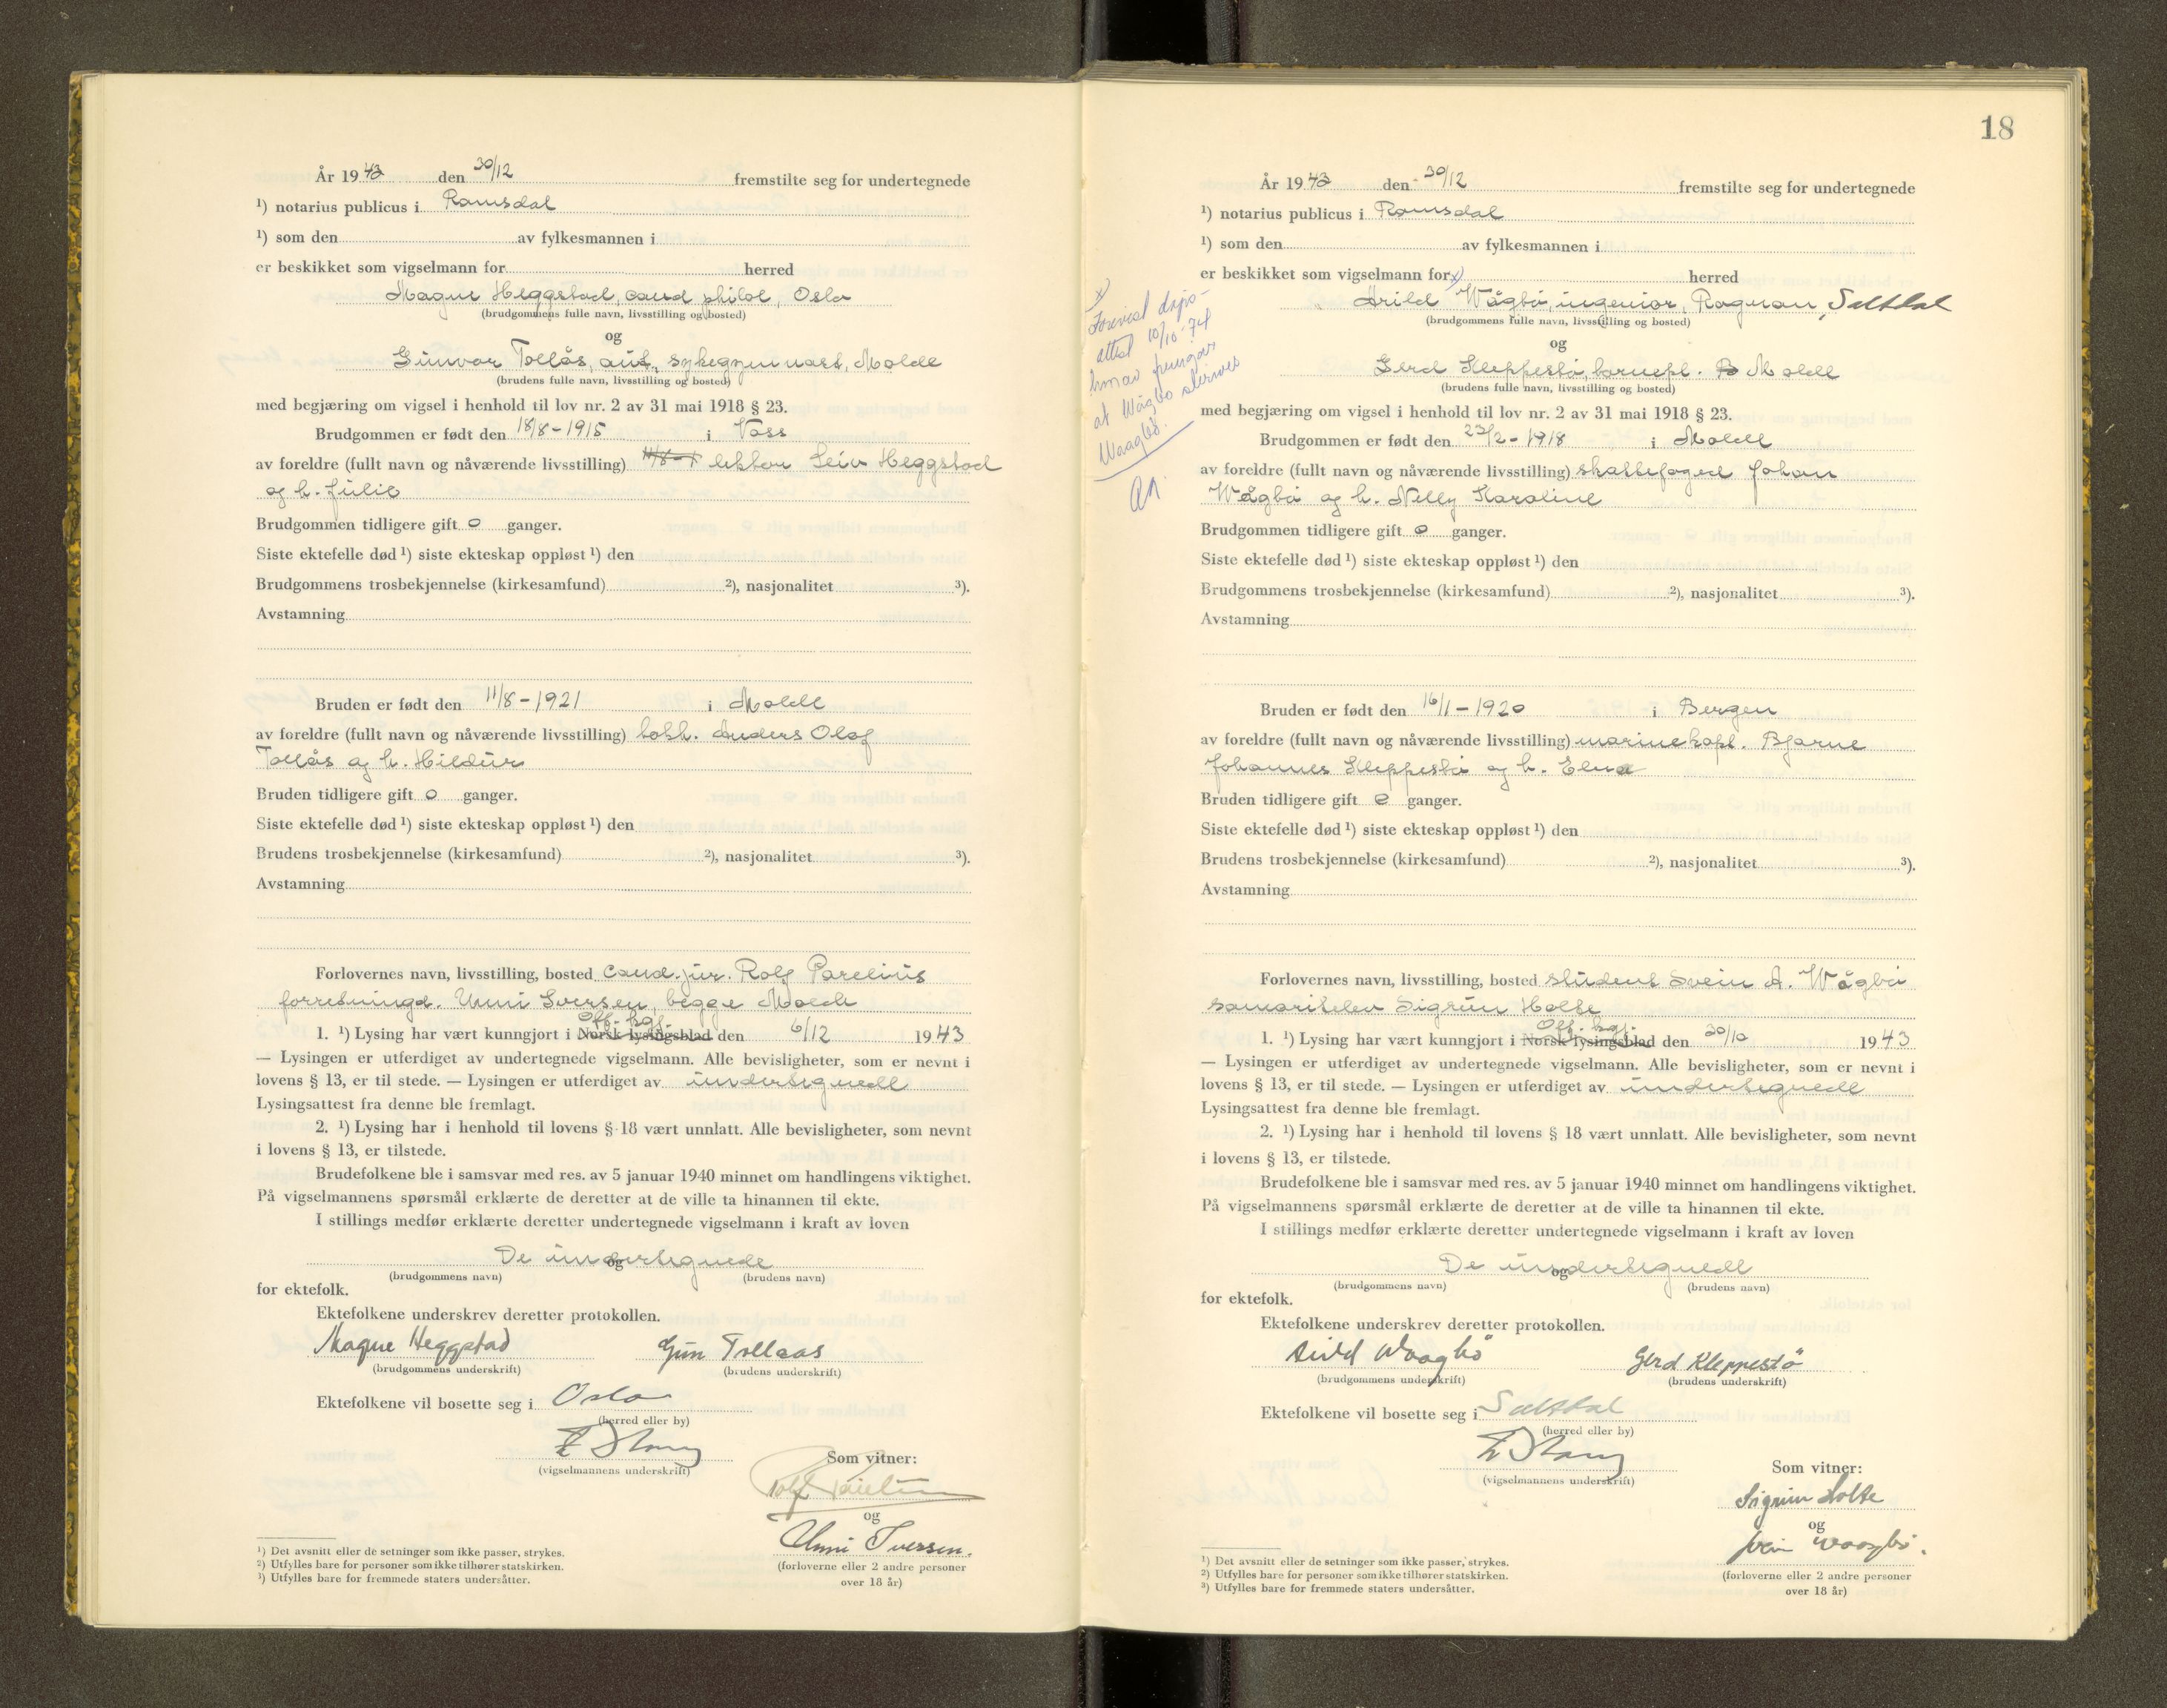 År 1943 den 30/12 fremstilte seg for undertegnede
¹) notarius publicus i Romsdal
¹) som den av fylkesmannen i
er beskikket som vigselmann for herred
Magne Heggstad, cand philol, Oslo
(brudgommens fulle navn, livsstilling og bosted)
og
Gunvor Tollås, aut. sykegymnast, Molde
(brudens fulle navn, livsstilling og bosted)
med begjæring om vigsel i henhold til lov nr. 2 av 31 mai 1918 § 23.
Brudgommen er født den 18/8-1915 i Voss
av foreldre (fullt navn og nåværende livsstilling) lektor Leiv Heggstad
og h. Julie
Brudgommen tidligere gift 0 ganger.
Siste ektefelle død ¹) siste ekteskap oppløst ¹) den
Brudgommens trosbekjennelse (kirkesamfund) ²), nasjonalitet ³).
Avstamning
Bruden er født den 11/8-1921 i Molde
av foreldre (fullt navn og nåværende livsstilling) bokh. Anders Olaf
Tollås og h. Hildur
Bruden tidligere gift 0 ganger.
Siste ektefelle død ¹) siste ekteskap oppløst ¹) den
Brudens trosbekjennelse (kirkesamfund) ²), nasjonalitet ³).
Avstamning
Forlovernes navn, livsstilling, bosted cand. jur. Rolf Parelius
forretningd. Unni Iversen, begge Molde
Off. kgj.
1. ¹) Lysing har vært kunngjort i Norsk lysingsblad den 6/12 1943
— Lysingen er utferdiget av undertegnede vigselmann. Alle bevisligheter, som er nevnt i
lovens § 13, er til stede. — Lysingen er utferdiget av undertegnede
Lysingsattest fra denne ble fremlagt.
2. ¹) Lysing har i henhold til lovens § 18 vært unnlatt. Alle bevisligheter, som nevnt
i lovens § 13, er tilstede.
Brudefolkene ble i samsvar med res. av 5 januar 1940 minnet om handlingens viktighet.
På vigselmannens spørsmål erklærte de deretter at de ville ta hinannen til ekte.
I stillings medfør erklærte deretter undertegnede vigselmann i kraft av loven
De undertegnede
og
(brudgommens navn) (brudens navn)
for ektefolk.
Ektefolkene underskrev deretter protokollen.
Magne Heggstad Gun Tollaas
(brudgommens underskrift) (brudens underskrift)
Ektefolkene vil bosette seg i Oslo
(herred eller by)
(vigselmannens underskrift)
Som vitner:
Rolf Parelius
og
Unni Iversen.
(forloverne eller 2 andre personer
over 18 år)
¹) Det avsnitt eller de setninger som ikke passer, strykes.
²) Utfylles bare for personer som ikke tilhører statskirken.
³) Utfylles bare for fremmede staters undersåtter.
18
År 1943 den 30/12 fremstilte seg for undertegnede
¹) notarius publicus i Romsdal
¹) som den av fylkesmannen i
er beskikket som vigselmann for x) herred
Arild Wågbø, ingeniør, Rognan, Saltdal
(brudgommens fulle navn, livsstilling og bosted)
og
Gerd Kleppestø, barnepl. Molde
(brudens fulle navn, livsstilling og bosted)
x)
Forevist dåps-
attest 10/10-74
hvorav fremgår
at Wågbø skrives
Waagbø.
med begjæring om vigsel i henhold til lov nr. 2 av 31 mai 1918 § 23.
Brudgommen er født den 23/2-1918 i Molde
av foreldre (fullt navn og nåværende livsstilling) skattefoged Johan
Wågbø og h. Nelly Karoline
Brudgommen tidligere gift 0 ganger.
Siste ektefelle død ¹) siste ekteskap oppløst ¹) den
Brudgommens trosbekjennelse (kirkesamfund) ²), nasjonalitet ³).
Avstamning
Bruden er født den 16/1-1920 i Bergen
av foreldre (fullt navn og nåværende livsstilling) marinekapt. Bjarne
Johannes Kleppestø og h. Elna
Bruden tidligere gift 0 ganger.
Siste ektefelle død ¹) siste ekteskap oppløst ¹) den
Brudens trosbekjennelse (kirkesamfund) ²), nasjonalitet ³).
Avstamning
Forlovernes navn, livsstilling, bosted student Svein A. Wågbø
samaritelev Sigrun Holte
Off. kgj.
1. ¹) Lysing har vært kunngjort i Norsk lysingsblad den 30/10 1943
— Lysingen er utferdiget av undertegnede vigselmann. Alle bevisligheter, som er nevnt i
lovens § 13, er til stede. — Lysingen er utferdiget av undertegnede
Lysingsattest fra denne ble fremlagt.
2. ¹) Lysing har i henhold til lovens § 18 vært unnlatt. Alle bevisligheter, som nevnt
i lovens § 13, er tilstede.
Brudefolkene ble i samsvar med res. av 5 januar 1940 minnet om handlingens viktighet.
På vigselmannens spørsmål erklærte de deretter at de ville ta hinannen til ekte.
I stillings medfør erklærte deretter undertegnede vigselmann i kraft av loven
De undertegnede
og
(brudgommens navn) (brudens navn)
for ektefolk.
Ektefolkene underskrev deretter protokollen.
Arild Waagbø Gerd Kleppestö
(brudgommens underskrift) (brudens underskrift)
Ektefolkene vil bosette seg i Saltdal
(herred eller by)
(vigselmannens underskrift)
Som vitner:
Sigrun Holte
og
Svein Waagbø.
(forloverne eller 2 andre personer
over 18 år)
¹) Det avsnitt eller de setninger som ikke passer, strykes.
²) Utfylles bare for personer som ikke tilhører statskirken.
³) Utfylles bare for fremmede staters undersåtter.